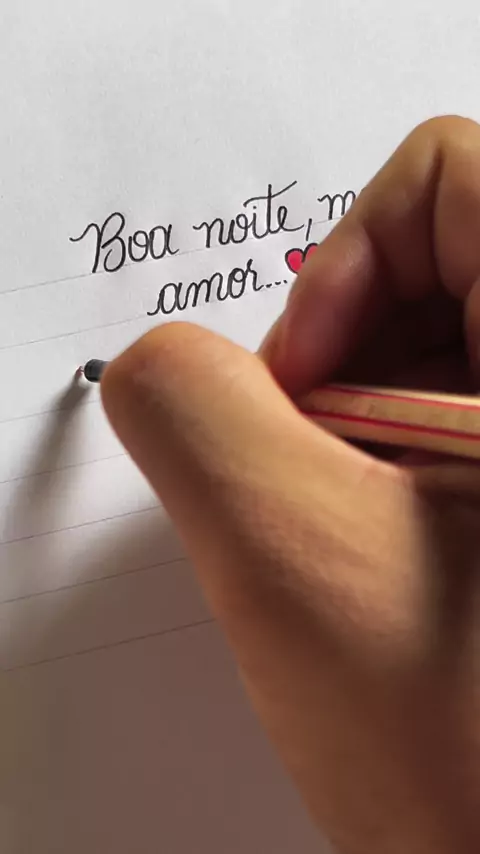 Boa noite, m
amor...